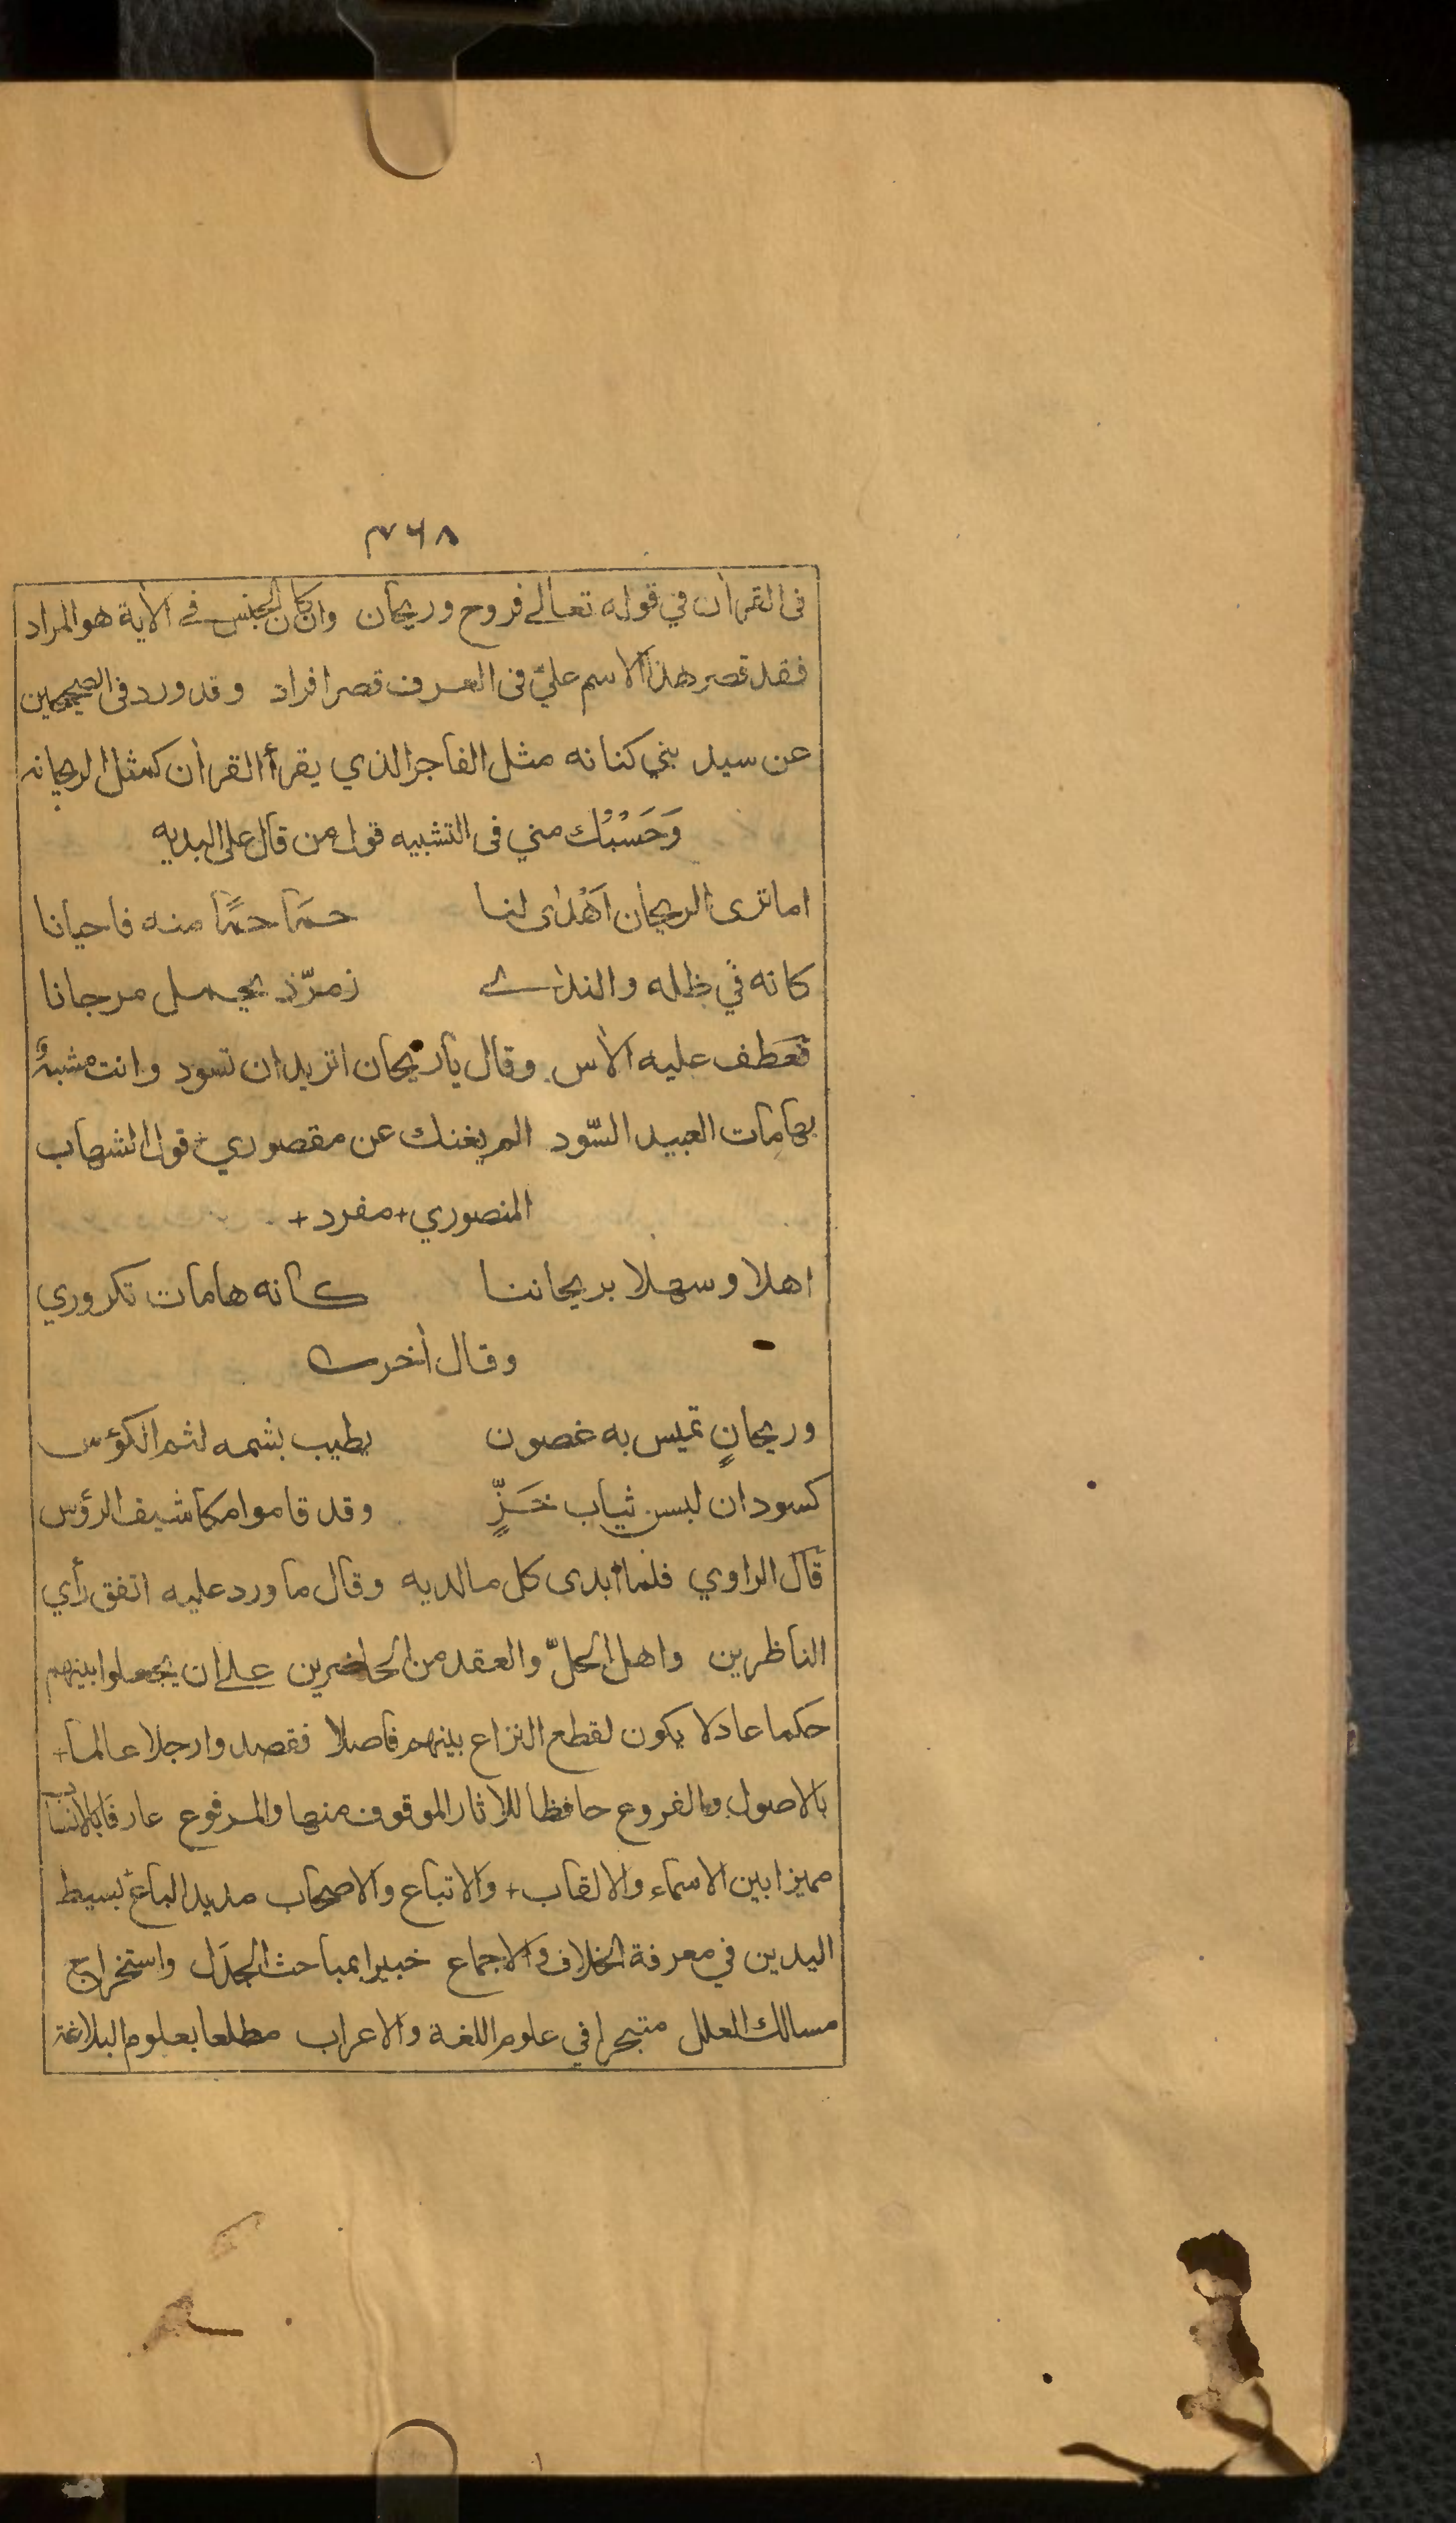 ٣٦٨
فى القرأن في قوله تعالے فروح وريحان وان كان الجنس فے الأية هو المراد
فقد قصر هذا الاسم عليّ فى العرف قصر افراد وقد ورد فى الصحيحين
عن سيد بني كنانه مثل الفاجر الذي يقرأ القرأن كمثل الريحانه
وَحَسْبُك مني فى التشبيه قول من قال على البديه
اما ترى الريحان اَهْدٰى لنا حمَا حمًا منه فاحيانا
كانه في ظله والندٰے زمرّذ يحمل مرجانا
فَعَطف عليه الأس وقال يا ريحان اتريد ان تسود وانت مشبهٌ
بهَامَات العبيد السّود الم يغنك عن مقصوري قول الشهاب
المنصوري + مفرد +
اهلا وسهلا بريحاننا كانه هامات تكروري
وقال أخر
وريحانٍ تميس به غصون يطيب بشمه لثم الكؤس
كسودان لبسن ثياب خَزٍّ وقد قاموا مكاشيف الرؤس
قال الراوي فلما ابدى كل ما لديه وقال ما ورد عليه اتفق رأي
الناظرين واهل الحلّ والعقد من الحاضرين علے ان يجعلوا بينهم
حكما عادلا يكون لقطع النزاع بينهم فاصلا فقصدوا رجلا عالما +
بالاصول والفروع حافظا للاثار الموقوف منها والمرفوع عارفا بالانساب
مميزا بين الاسماء والالقاب + والاتباع والاصحاب مديد الباع بسيط
اليدين في معرفة الخلاف والاجماع خبيرا بمباحث الجدَل واستخراج
مسالك العلل متبحرا في علوم اللغة والاعراب مطلعا بعلوم البلاغة